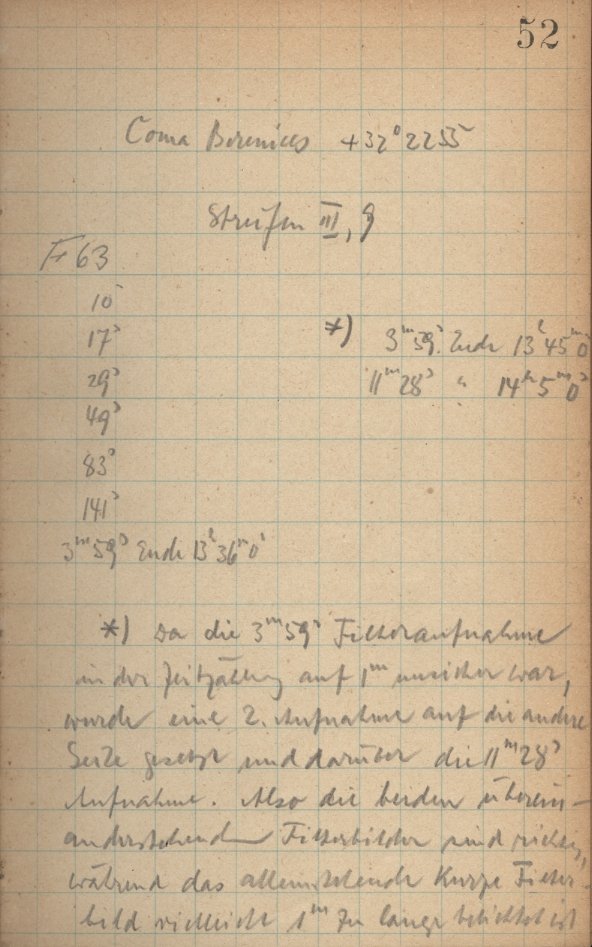 52
Coma Berenices +32° 2255
Streifen III, 9
F 63
10ˢ
17ˢ
29ˢ
49ˢ
83ˢ
141ˢ
3ᵐ 59ˢ Ende 13ʰ 36ᵐ 0ˢ
*) 3ᵐ 59ˢ. Ende 13ʰ 45ᵐ 0
11ᵐ 28ˢ " 14ʰ 5ᵐ 0ˢ
*) Da die 3ᵐ 59ˢ Filteraufnahme
in der Zeitzählung auf 1ᵐ unsicher war,
wurde eine 2. Aufnahme auf die andere
Seite gesetzt und darüber die 11ᵐ 28ˢ
Aufnahme. Also die beiden überein-
anderstehenden Filterbilder sind richtig,
während das alleinstehende kurze Filter-
bild vielleicht 1ᵐ zu lange belichtet ist